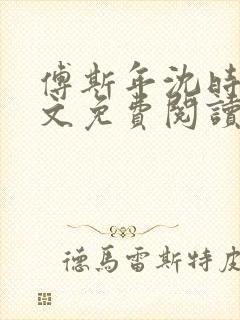 傅斯年沈時
文免費閱讀
德馬雷斯特皮